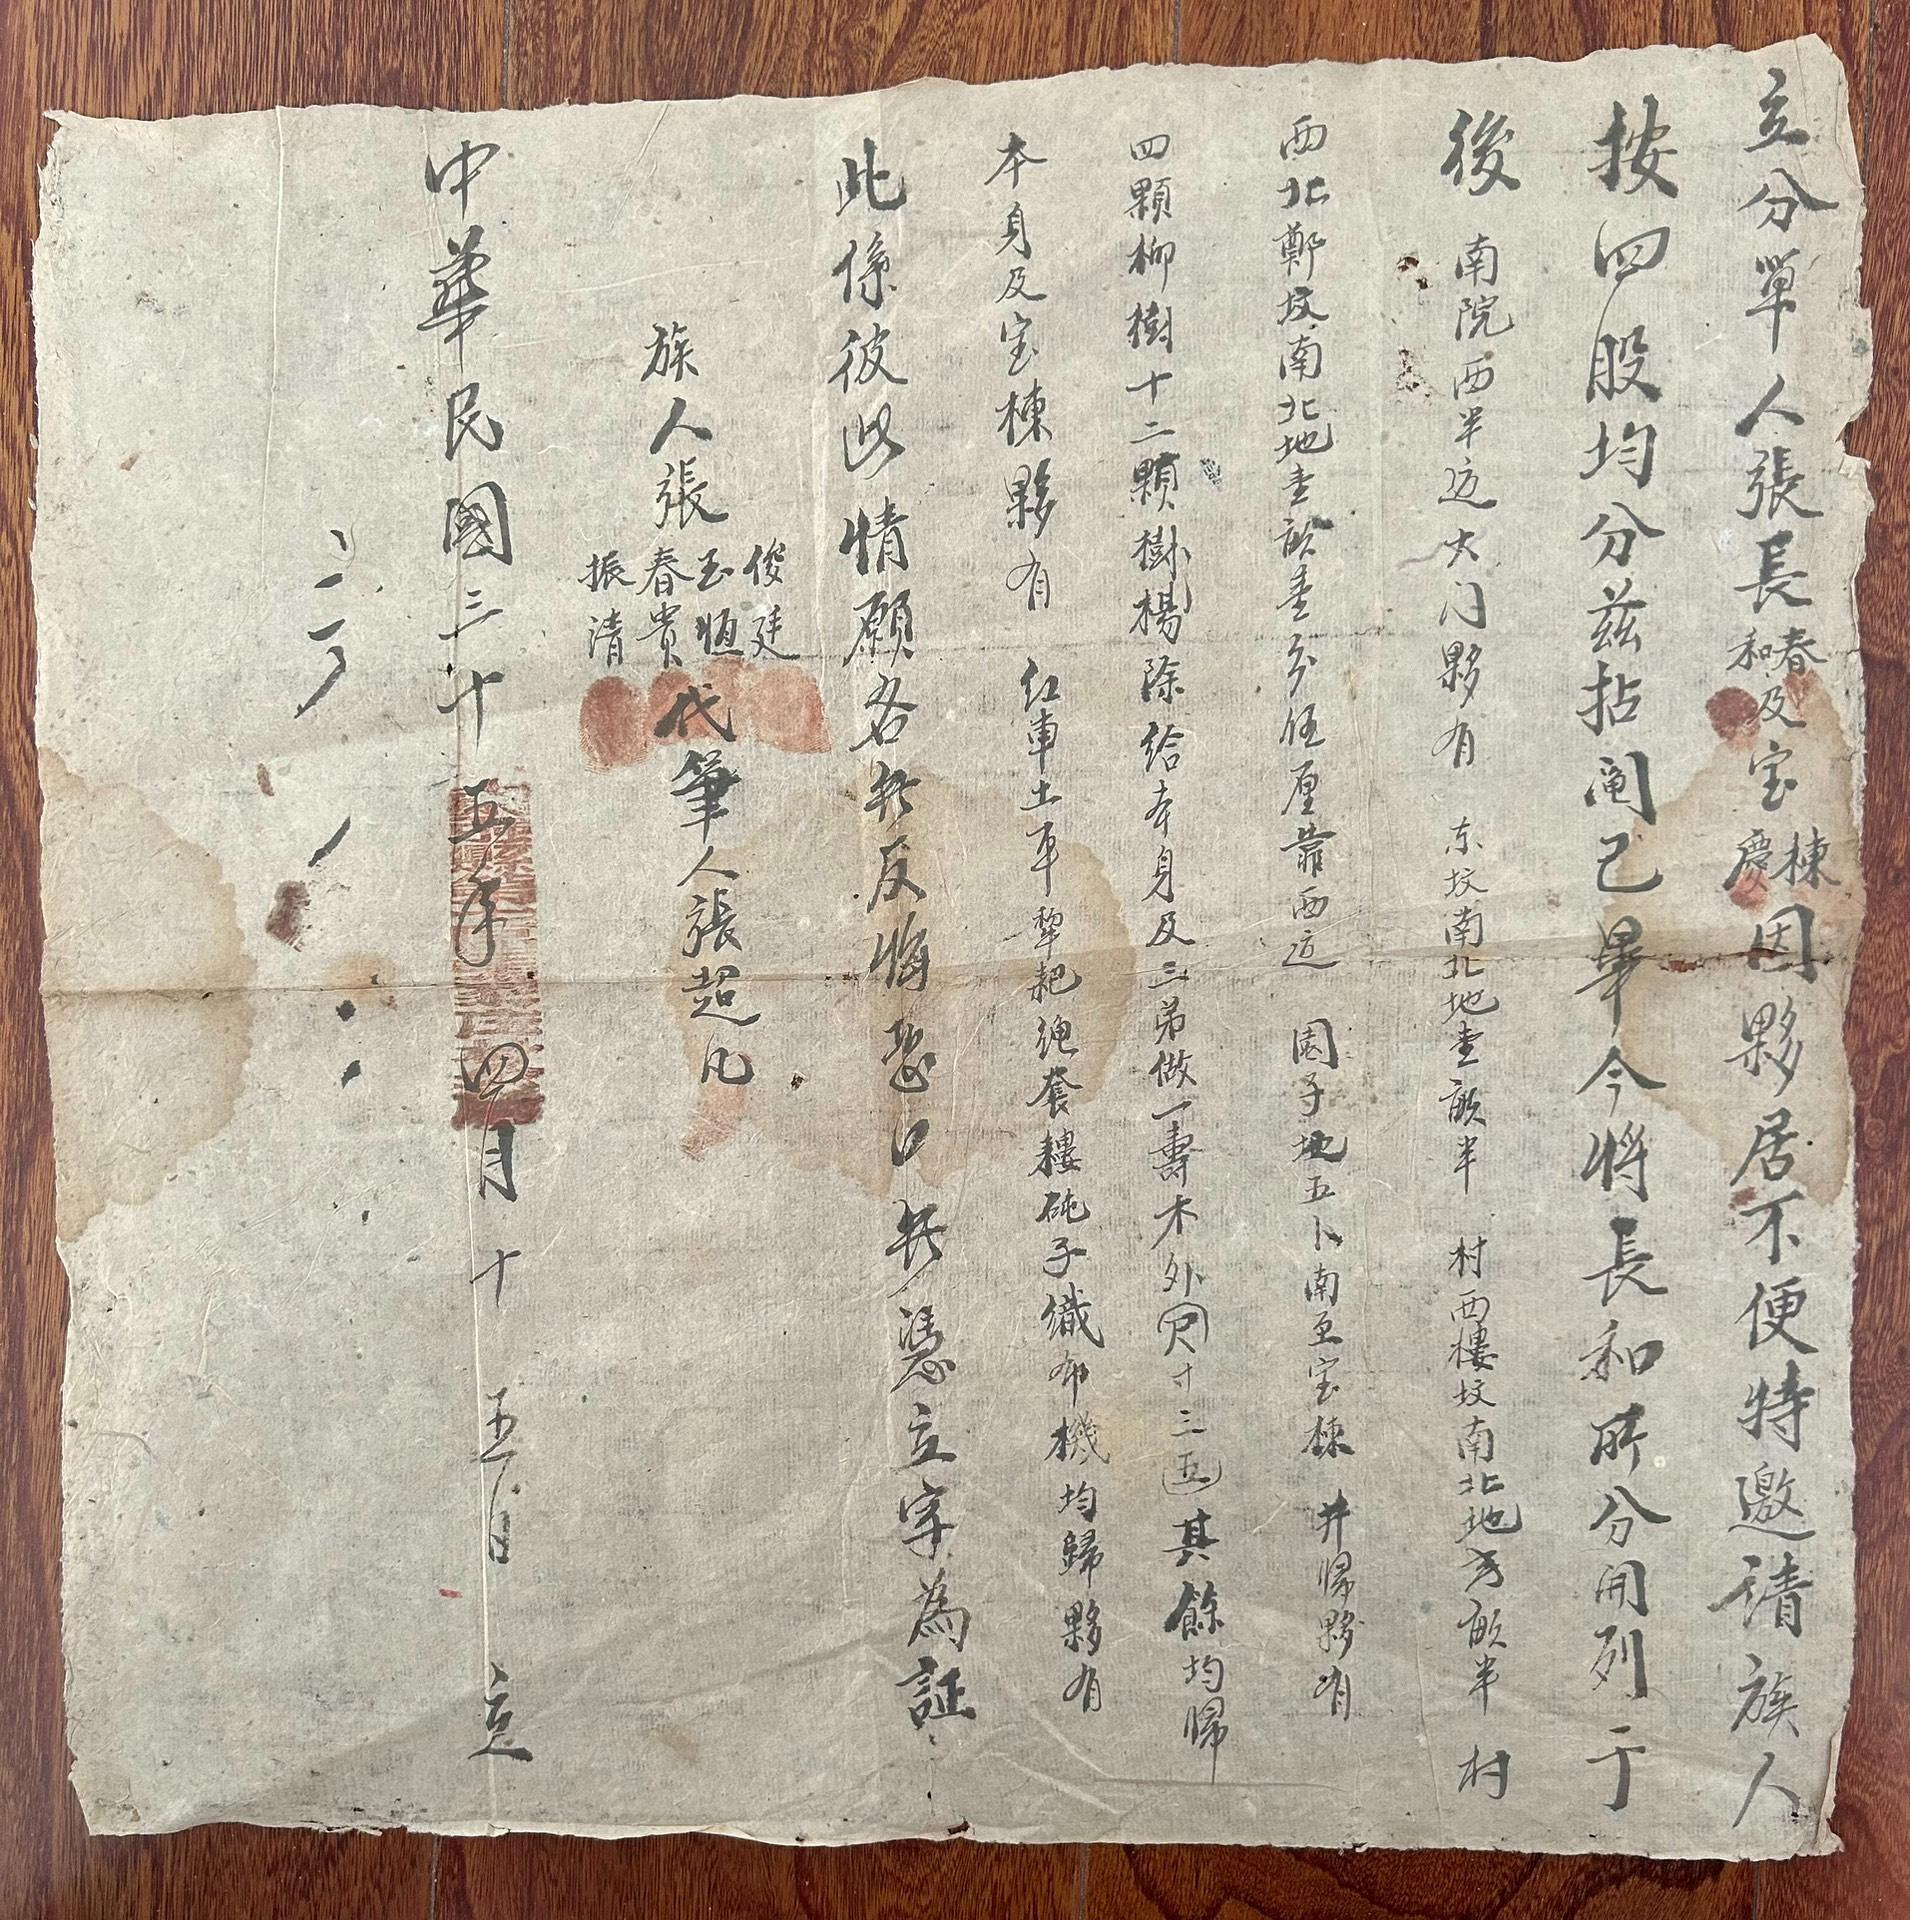 立分單人張長春和及宝棟慶因夥居不便特邀請族人
按四股均分茲拈鬮已畢今將長和所分開列于
後 南院西半边大门夥有 东坟南北地壹畝半 村西樓坟南北地 畝半 村
西北鄭坟南北地壹畝壹分伍厘靠西边 園子地五卜南至宝棟 井歸夥有
四顆柳樹十二顆樹楊除給本身及三弟做一壽木外尺寸三五其餘均歸
本身及宝棟夥有 红車土車犁耙繩套耬砘子織布機均歸夥有
此係彼此情願各無反悔恐口無憑立字為証
族人張俊廷玉恒春貴振清代筆人張超凡
中華民國三十五年四月十五日立